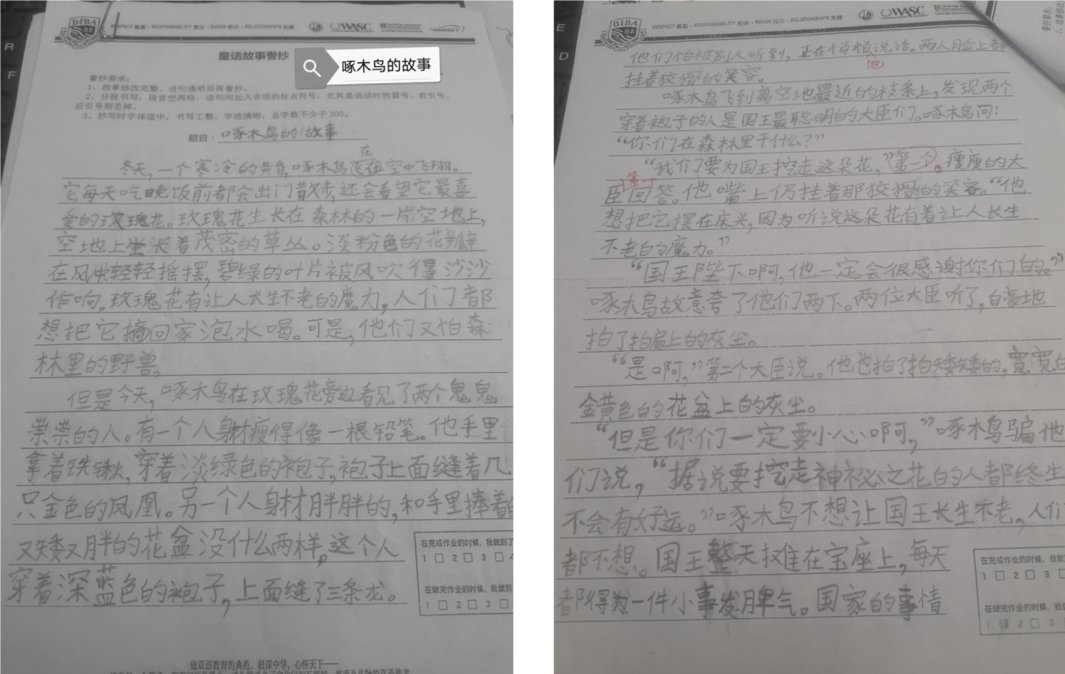 BIBA
RESPECT 尊重 · RESPONSIBILITY 责任 · RIGOR 活力 · RELATIONSHIPS 友情
WASC
童话故事誊抄
啄木鸟的故事
誊抄要求:
1、故事修改完整,语句通顺后再誊抄。
2、分段书写,段首空两格,语句间加入合适的标点符号,尤其是说话时的冒号、前引号、
后引号别丢掉。
3、抄写时字体适中,书写工整,字迹清晰,总字数不少于300。
题目:啄木鸟的故事
在
冬天,一个寒冷的黄昏,啄木鸟在空中飞翔。
它每天吃晚饭前都会出门散步,还会看望它最喜
爱的玫瑰花。玫瑰花生长在森林的一片空地上,
空地上长着茂密的草丛。淡粉色的花瓣
在风中轻轻摇摆,碧绿的叶片被风吹得沙沙
作响。玫瑰花有让人长生不老的魔力,人们都
想把它摘回家泡水喝。可是,他们又怕森
林里的野兽。
但是今天,啄木鸟在玫瑰花旁边看见了两个鬼鬼
祟祟的人。有一个人身材瘦得像一根铅笔。他手里
拿着铁锹,穿着淡绿色的袍子,袍子上面缝着几
只金色的凤凰。另一个人身材胖胖的,和手里捧着的
又矮又胖的花盆没什么两样,这个人
穿着深蓝色的袍子,上面缝了三条龙。
在完成作业的时候,我做到了
1 □ 2 □ 3 □ 4
在做完作业的时候,我做到
1 □ 2 □ 3 □
做双语教育的典范,根深中华,心怀天下——
BIBA
RESPECT 尊重 · RESPONSIBILITY 责任 · RIGOR 活力 · RELATIONSHIPS 友情
WASC
他们怕被别人听到,正在悄悄说话。两人脸上都
他
挂着狡猾的笑容。
啄木鸟飞到离空地最近的枝条上,发现两个
穿着袍子的人是国王最聪明的大臣们。啄木鸟问:
“你们在森林里干什么?”
“我们要为国王挖走这朵花,”第一个瘦瘦的大
臣回答。他嘴上仍挂着那狡猾的笑容。“他
想把它摆在床头,因为听说这朵花有着让人长生
不老的魔力。”
“国王陛下啊,他一定会很感谢你们的。”
啄木鸟故意夸了他们两下。两位大臣听了,自豪地
拍了拍肩上的灰尘。
“是啊,”第二个大臣说。他也拍了拍矮矮的,宽宽的
金黄色的花盆上的灰尘。
“但是你们一定要小心啊,”啄木鸟骗他
们说,“据说要挖走神秘之花的人都终生
不会有好运。”啄木鸟不想让国王长生不老,人们
都不想。国王整天摊在宝座上,每天
都得为一件小事发脾气。国家的事情
在完成作业的时候,我
1 □ 2 □ 3 □
在做完作业的时候
1 □ 2 □ 3